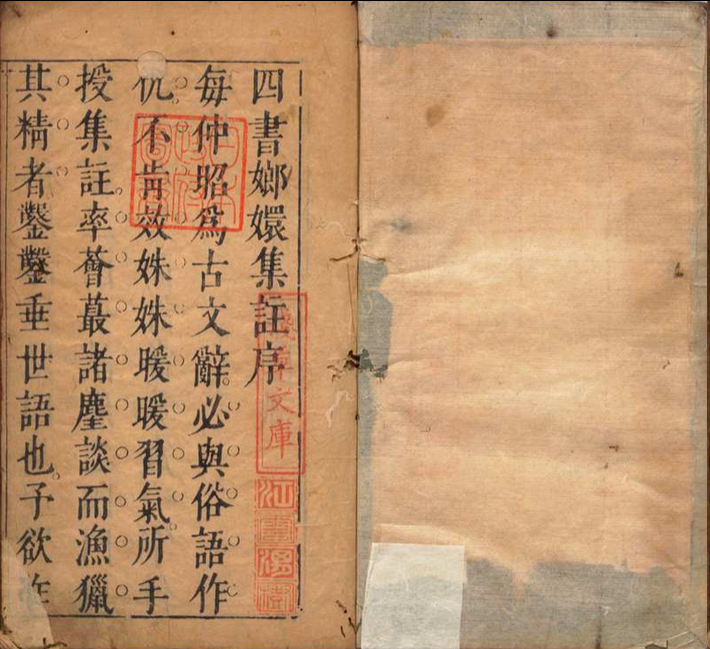 四書嫏嬛集註序
每仲昭爲古文辭必與俗語作
仇不肯效姝姝暖暖習氣所手
授集註率薈蕞諸麈談而漁獵
其精者鑿鑿垂世語也予欲
文庫